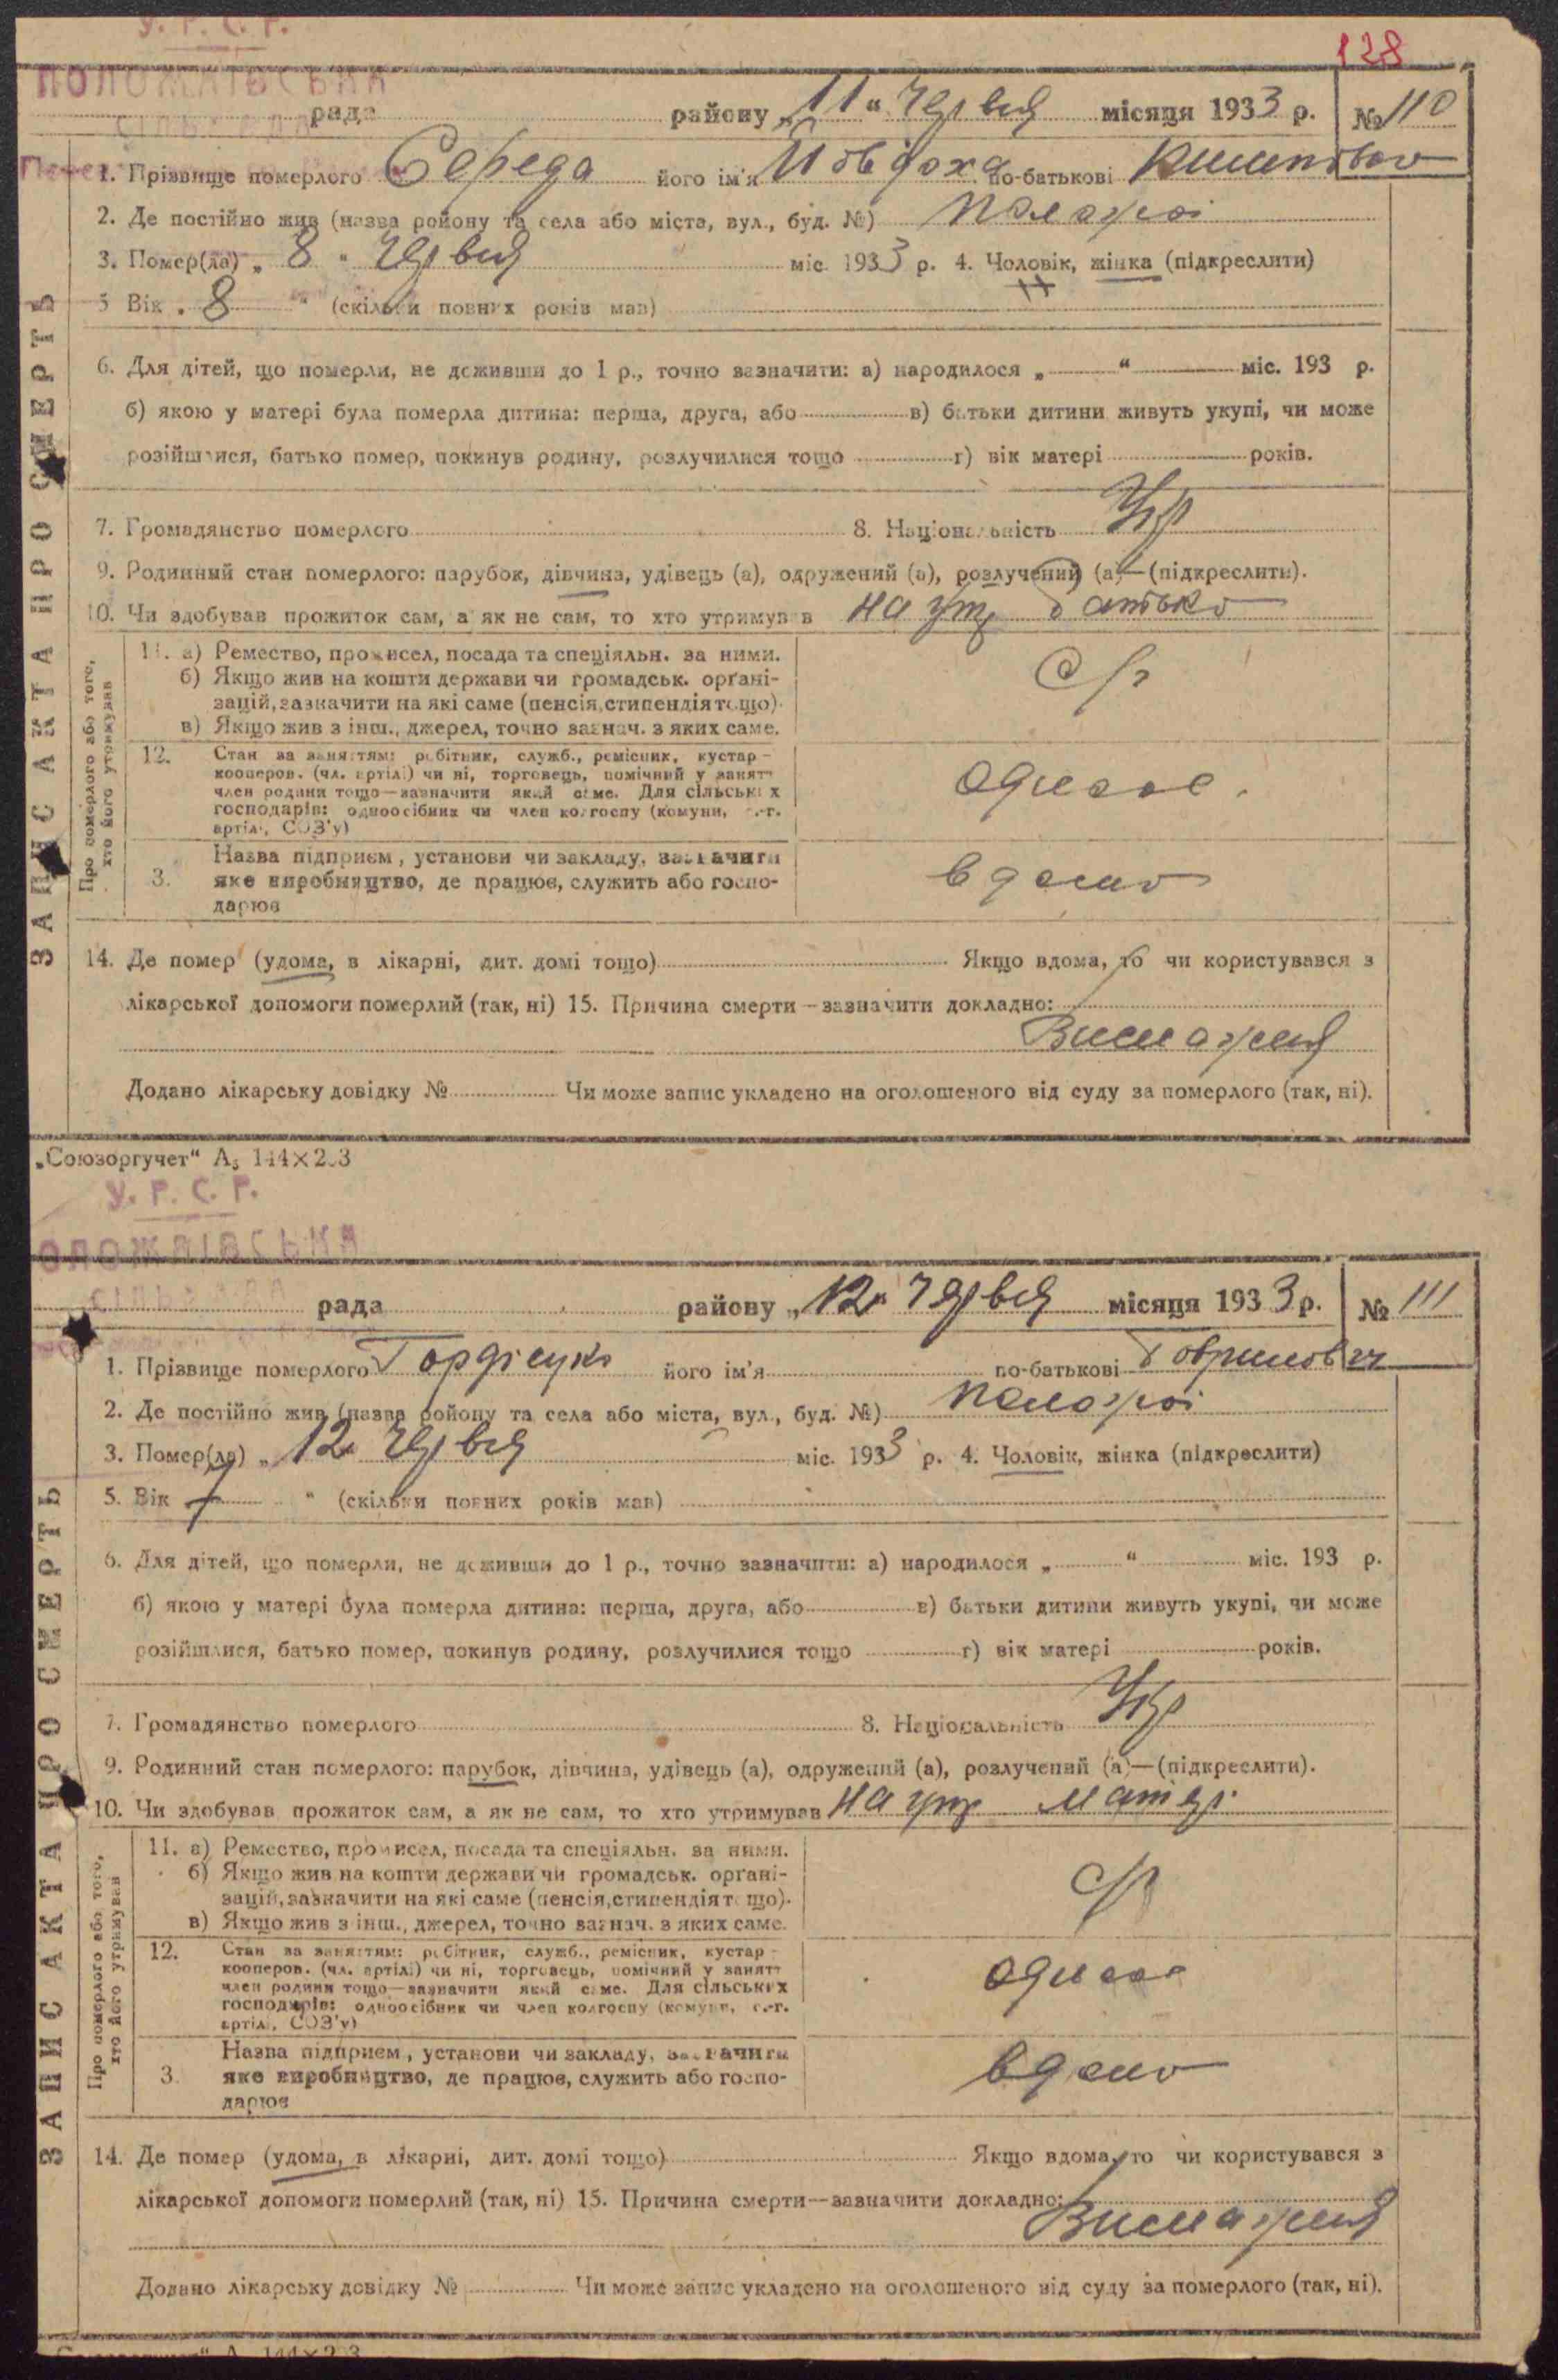 У. Р. С. Р.
128
ПОЛОЖАЇВСЬКА
СІЛЬРАДА
рада району „11“ Червня місяця 1933 р. № 110
1. Прізвище померлого Середа його ім'я по-батькові
2. Де постійно жив (назва району та села або міста, вул., буд. №)
3. Помер(ла) „ 8 " Червня міс. 1933 р. 4. Чоловік, жінка (підкреслити)
5 Вік „ 8 " (скільки повних років мав)
6. Для дітей, що померли, не доживши до 1 р., точно зазначити: а) народилося „ “ міс. 193 р.
б) якою у матері була померла дитина: перша, друга, або в) батьки дитини живуть укупі, чи може
розійшлися, батько помер, покинув родину, розлучилися тощо г) вік матері років.
7. Громадянство померлого 8. Національність Укр
9. Родинний стан померлого: парубок, дівчина, удівець (а), одружений (а), розлучений (а)—(підкреслити).
10. Чи здобував прожиток сам, а як не сам, то хто утримував на утр батько
Про померлого або того, хто його утримував
11. а) Ремество, промисел, посада та спеціяльн. за ними.
б) Якщо жив на кошти держави чи громадськ. орґані-
зацій, зазначити на які саме (пенсія, стипендія тощо).
в) Якщо жив з інш., джерел, точно зазнач. з яких саме.
с/г
12. Стан за заняттям: робітник, служб., ремісник, кустар -
кооперов. (чл. артілі) чи ні, торговець, помічний у занятт
член родини тощо—зазначити який саме. Для сільських
господарів: одноосібник чи член колгоспу (комуни, с.-г.
артілі, СОЗ'у)
3. Назва підприєм, установи чи закладу, зазначити
яке виробництво, де працює, служить або госпо-
дарює
вдома
14. Де помер (удома, в лікарні, дит. домі тощо) Якщо вдома, то чи користувався з
лікарської допомоги померлий (так, ні) 15. Причина смерти—зазначити докладно:
Виснаження
Додано лікарську довідку № Чи може запис укладено на оголошеного від суду за померлого (так, ні).
ЗАПИС АКТА ПРО СМЕРТЬ
„Союзоргучет“ А₅ 144×203
У. Р. С. Р.
ОЛОЖАЇВСЬКА
СІЛЬРАДА
рада району „12“ Червня місяця 1933 р. № 111
1. Прізвище померлого його ім'я по-батькові
2. Де постійно жив (назва району та села або міста, вул., буд. №)
3. Помер(ла) „ 12 Червня міс. 1933 р. 4. Чоловік, жінка (підкреслити)
5. Вік 7 " (скільки повних років мав)
6. Для дітей, що померли, не доживши до 1 р., точно зазначити: а) народилося „ “ міс. 193 р.
б) якою у матері була померла дитина: перша, друга, або в) батьки дитини живуть укупі, чи може
розійшлися, батько помер, покинув родину, розлучилися тощо г) вік матері років.
7. Громадянство померлого 8. Національність Укр
9. Родинний стан померлого: парубок, дівчина, удівець (а), одружений (а), розлучений (а)—(підкреслити).
10. Чи здобував прожиток сам, а як не сам, то хто утримував на утр матері
Про померлого або того, хто його утримував
11. а) Ремество, промисел, посада та спеціяльн. за ними.
б) Якщо жив на кошти держави чи громадськ. орґані-
зацій, зазначити на які саме (пенсія, стипендія тощо).
в) Якщо жив з інш., джерел, точно зазнач. з яких саме.
с/г
12. Стан за заняттям: робітник, служб., ремісник, кустар -
кооперов. (чл. артілі) чи ні, торговець, помічний у занятт
член родини тощо—зазначити який саме. Для сільських
господарів: одноосібник чи член колгоспу (комуни, с.-г.
артілі, СОЗ'у)
3. Назва підприєм, установи чи закладу, зазначити
яке виробництво, де працює, служить або госпо-
дарює
вдома
14. Де помер (удома, в лікарні, дит. домі тощо) Якщо вдома, то чи користувався з
лікарської допомоги померлий (так, ні) 15. Причина смерти—зазначити докладно:
Виснаження
Додано лікарську довідку № Чи може запис укладено на оголошеного від суду за померлого (так, ні).
ЗАПИС АКТА ПРО СМЕРТЬ